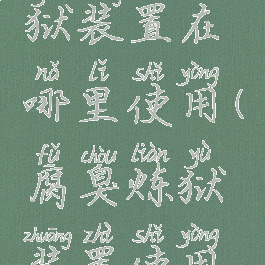 狱装置在
nǎ lǐ shǐ yòng
哪里使用(
fǔ chòu liàn yù
腐臭炼狱
zhuāng zhì shǐ yòng
装置使用